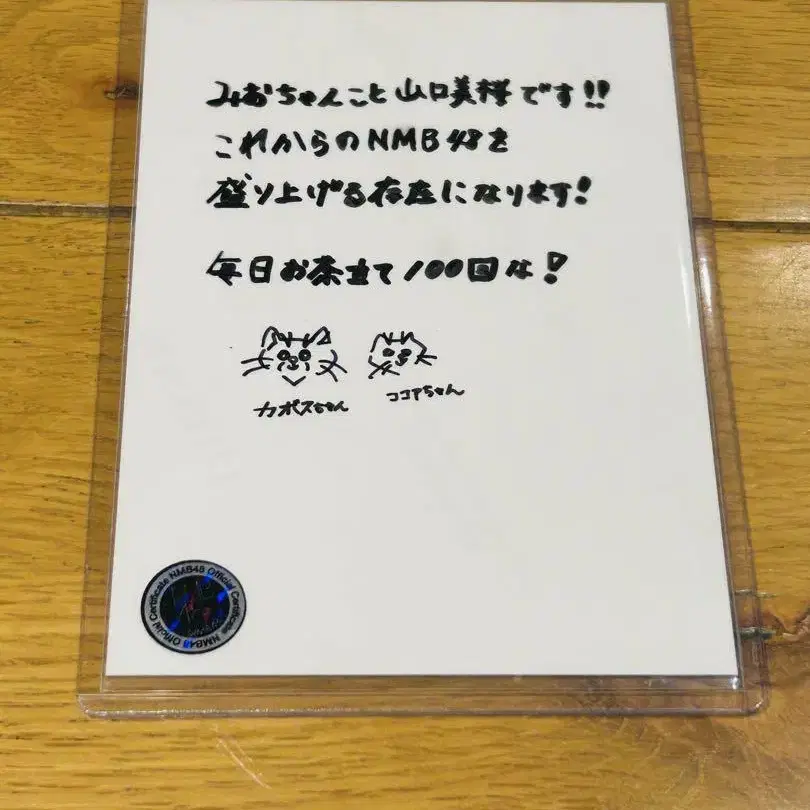 みおちゃんこと山口美桜です!!
これからのNMB48を
盛り上げる存在になります!
毎日お茶立て100回な!
カボスちゃん
ココアちゃん
NMB48 Official Certificate NMB48 Official Certificate